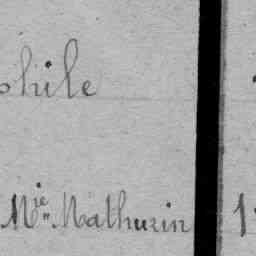 phile
Mie Mathurin 1